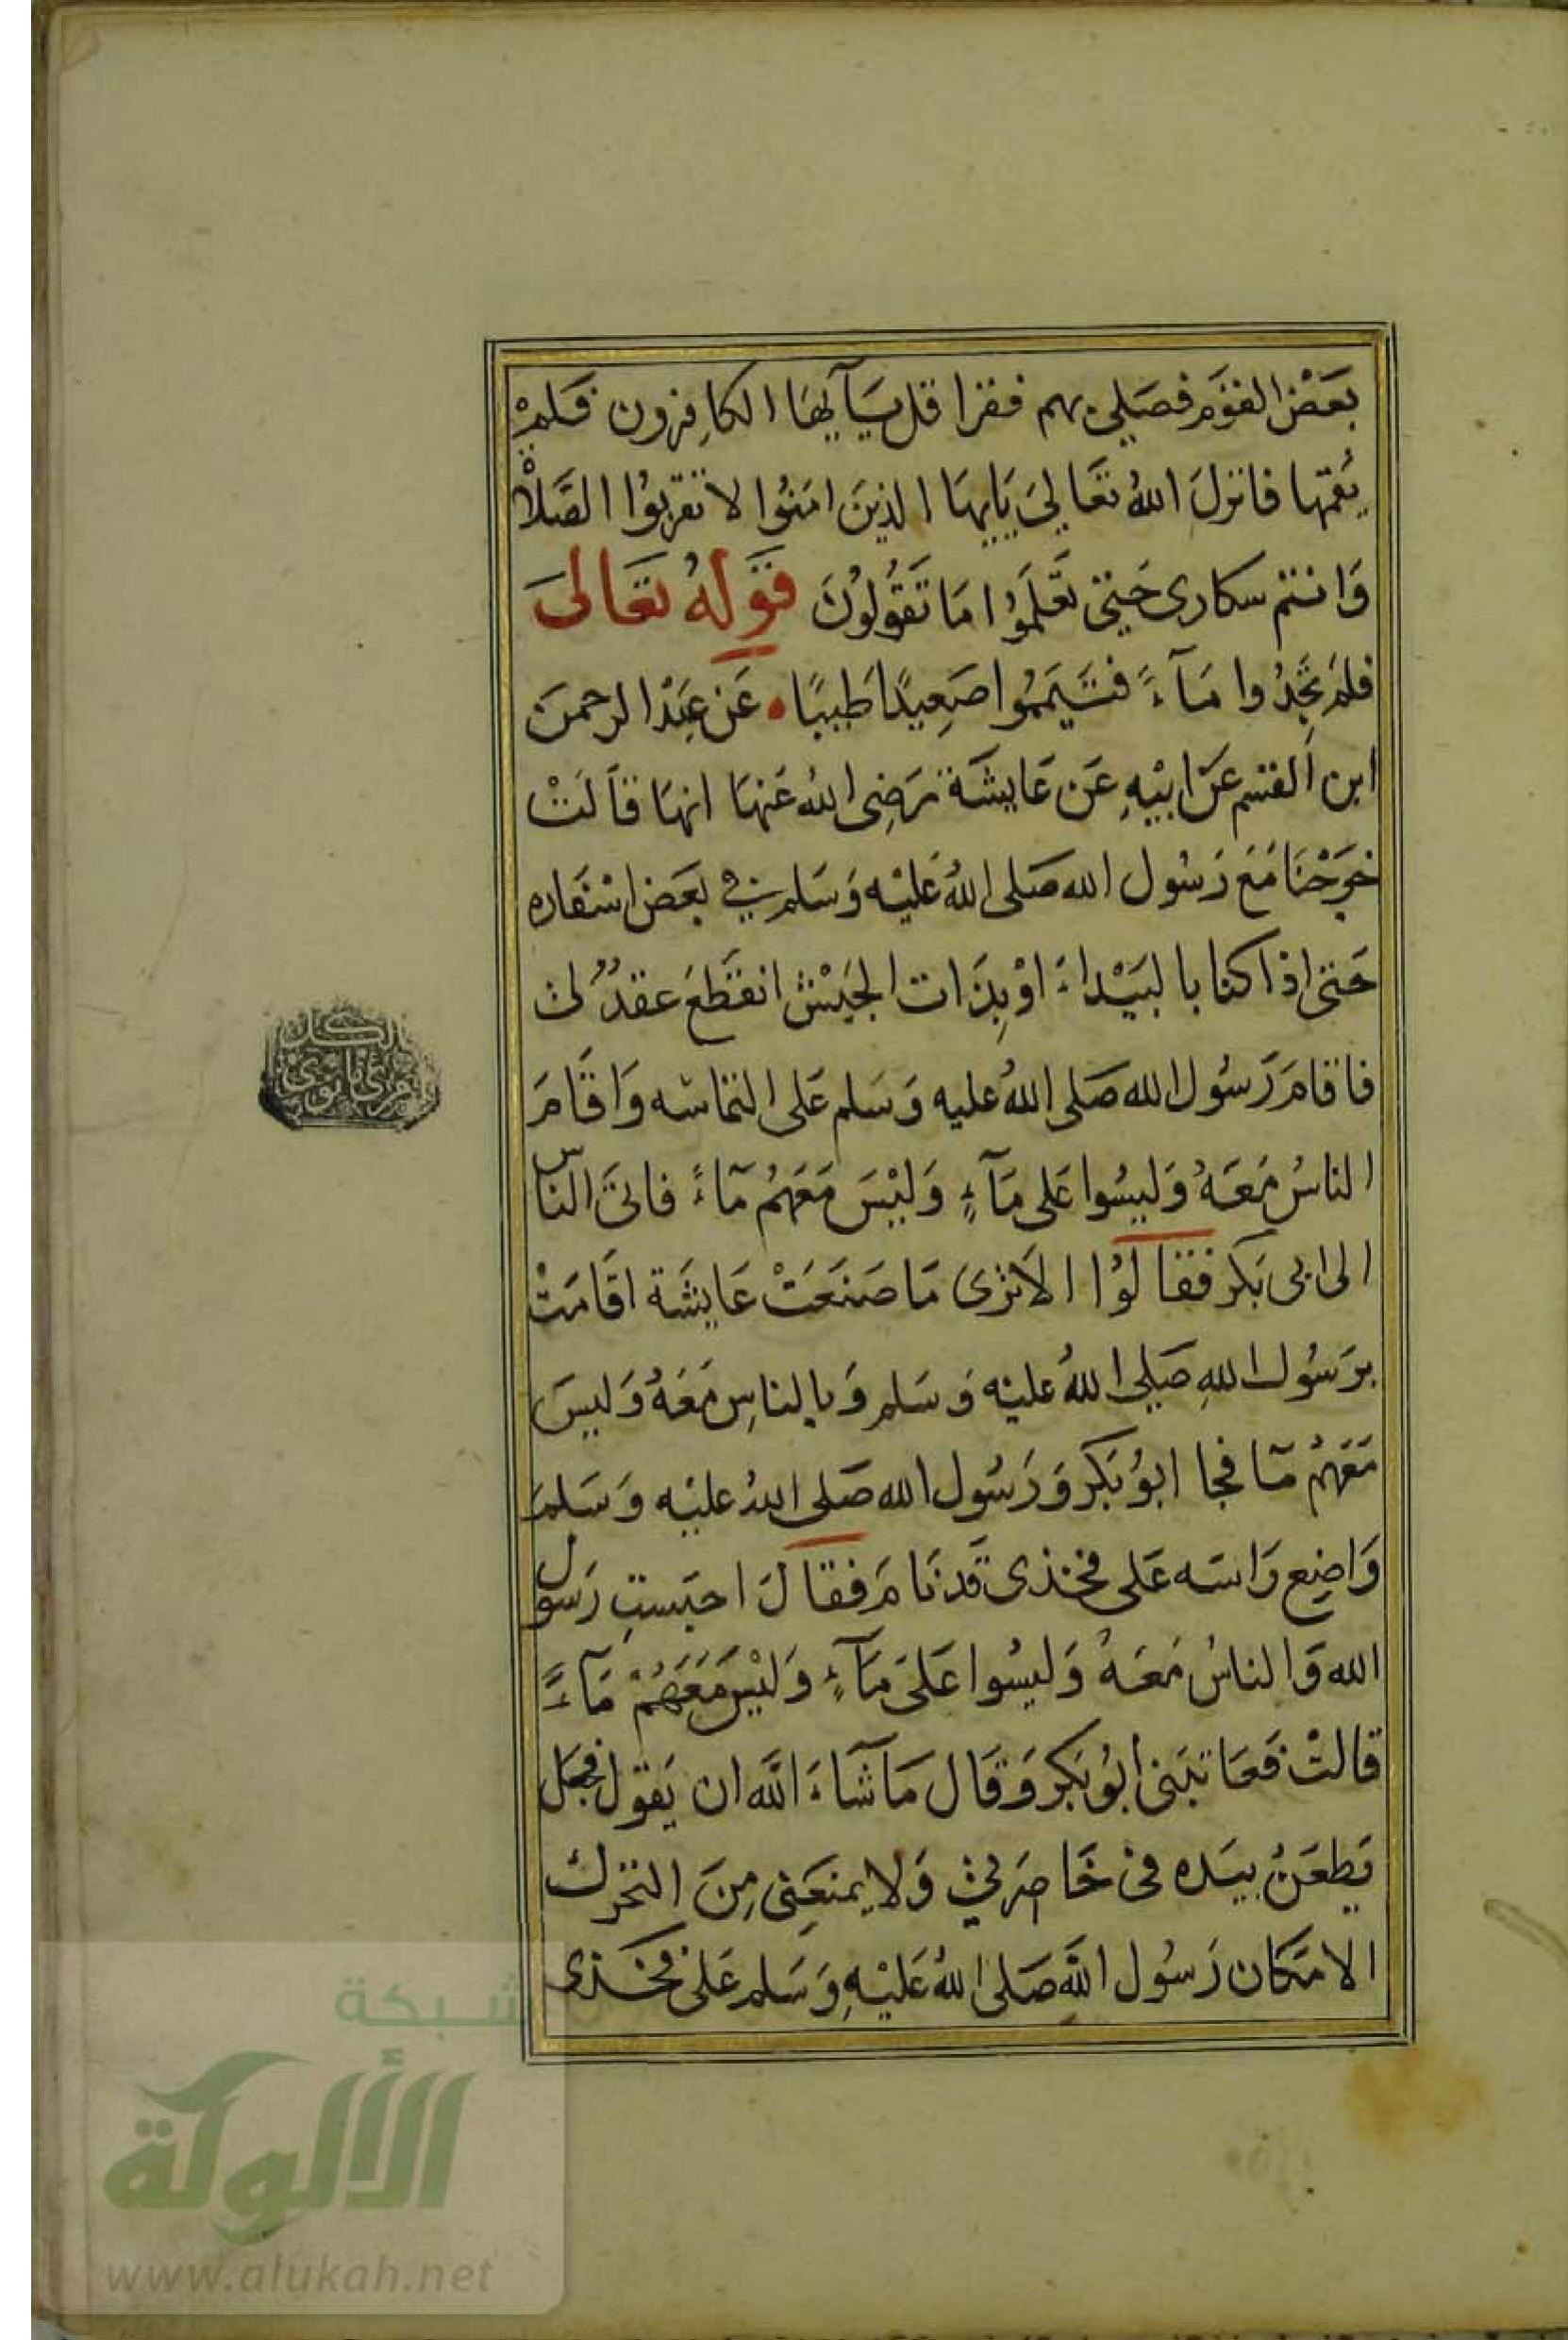 بَعَضُ القَوم فصَلى بهم فقرا قل يَـآيها الكافِرون فَلمْ
يُقمّها فانزلَ اللهُ تعَالىَ يَايهَا الذينَ امَنُوا لا تقربوُا الصَّلاةَ
وَانتم سكارى حَتى تَعلَموُا مَا تَقُولوُنَ قَولهُ تعَالىَ
فلم تجَدُوا مَـآءً فتَيَممُوا صَعِيدًا طَيبًا عَن عَبْد الرحمنَ
ابن القسم عَن ابيْهِ عَن عَايشَة رَضِى اللهُ عَنهَا انهَا قَالَتْ
خرَجْنَا مَعَ رَسُول الله صَلى اللهُ عَليْه وَسَلم فى بعَض اسْفاره
حَتى اذا كنا بالبَيْداءَ اوْ بِذَات الجَيْش انقَطعَ عقدٌ لى
فاقامَ رَسُول الله صَلى اللهُ عليه وَسَلم عَلى التمَاسه وَاقَامَ
الناسُ مَعَـهُ وَليسُوا عَلى مَآءٍ وَليْسَ مَعَهمُ مَاءً فاتىَ الناس
الى ابى بَكر فقالوُا الا تَرى مَا صَنَعَتْ عَايشَة اقَامَتْ
برَسُول اللهِ صَلى اللهُ عليْه وَسَلم وَبالناسِ مَعَهُ وَليسَ
مَعَهمُ مَا فجا ابوُ بَكر وَرَسُول الله صَلى اللهُ عليْه وَسَلمَ
وَاضِع رَاسَه عَلى فخذى قَد نَامَ فقالَ احبَستِ رَسول
الله وَالناسُ مَعَهُ وَليسُوا عَلىَ مَآءٍ وَليْسَ مَعَهُمْ مَآءً
قالتْ فَعَاتبَنى ابوُ بَكر وَقَال مَا شَآءَ اللّه ان يَقول فجعَل
يَطعَنُ بيَده فى خَاصِرتى وَلا يمنعَنِى مِنَ التحرك
الا مَكان رَسُول اللّه صَلى اللهُ عَليْهِ وَسَلم عَلى فخَذى
لكل
امرئ ما نوى
شبكة
الألوكة
www.alukah.net